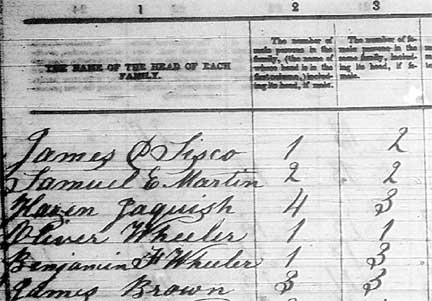 1 2 3
THE NAME OF THE HEAD OF EACH FAMILY.
The number of male persons in the family, (the name of whose head is in the first column,) including its head, if male.
The number of female persons in the same family, including its head, if female.
James Sisco 1 2
Samuel E. Martin 2 2
Jaquish 4 3
Oliver Wheeler 1 1
Benjamin H Wheeler 1 3
James Brown 3 3